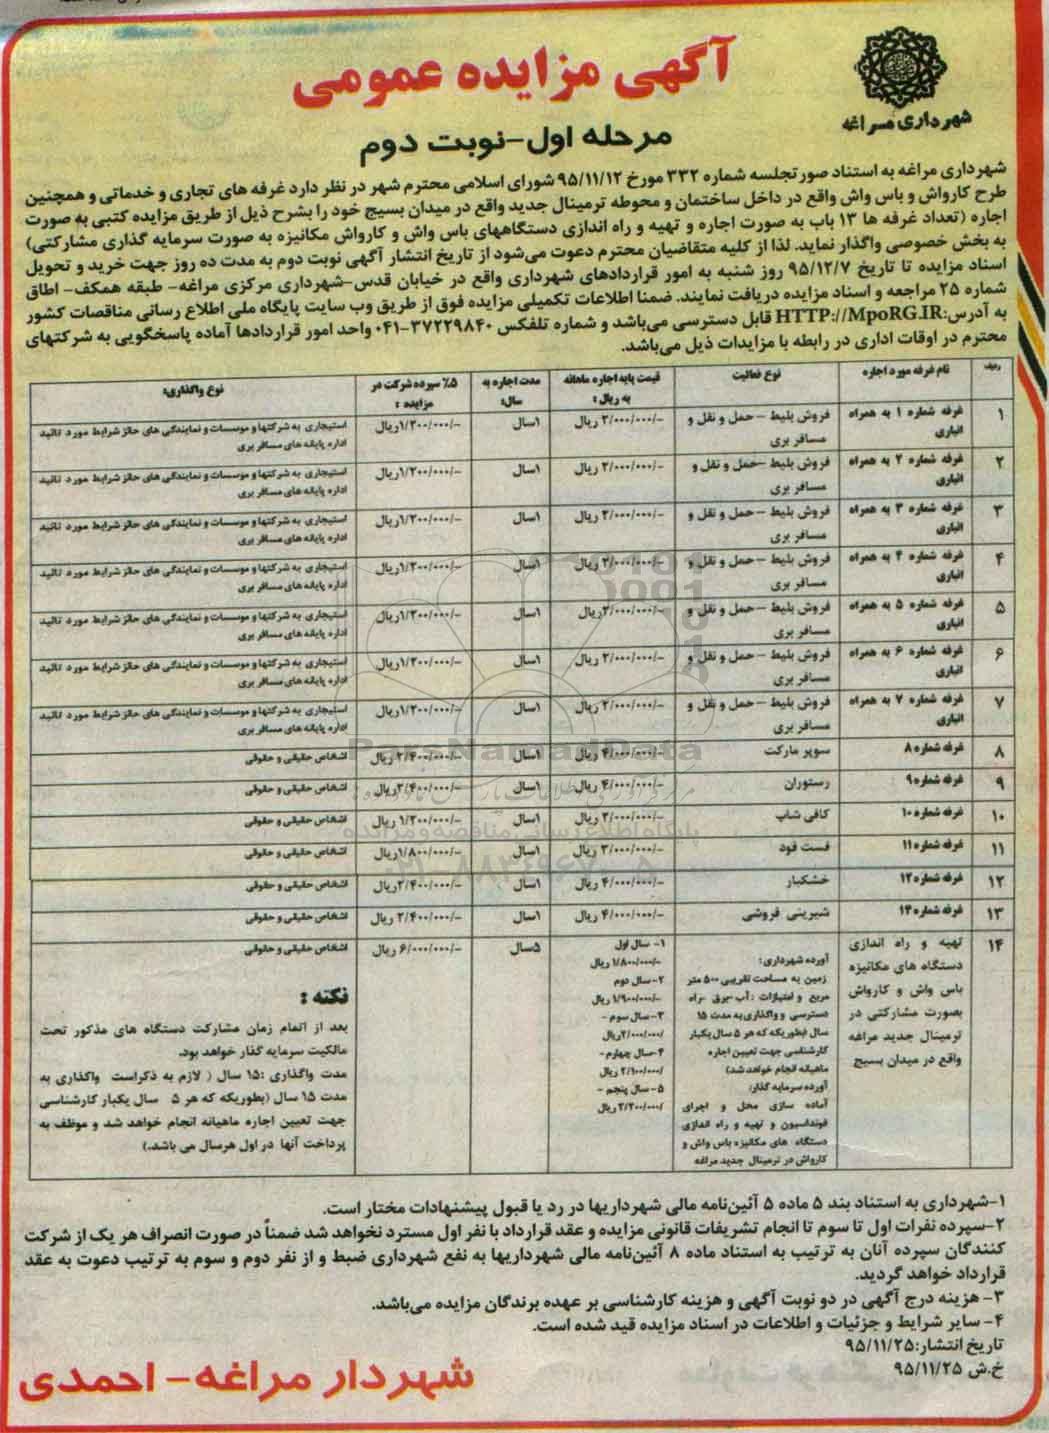 شهرداری مراغه
آگهی مزایده عمومی
مرحله اول-نوبت دوم
شهرداری مراغه به استناد صورتجلسه شماره ۳۳۲ مورخ ۹۵/۱۱/۱۲ شورای اسلامی محترم شهر در نظر دارد غرفه های تجاری و خدماتی و همچنین
طرح کارواش و باس واش واقع در داخل ساختمان و محوطه ترمینال جدید واقع در میدان بسیج خود را بشرح ذیل از طریق مزایده کتبی به صورت
اجاره (تعداد غرفه ها ۱۳ باب به صورت اجاره و تهیه و راه اندازی دستگاههای باس واش و کارواش مکانیزه به صورت سرمایه گذاری مشارکتی)
به بخش خصوصی واگذار نماید. لذا از کلیه متقاضیان محترم دعوت می‌شود از تاریخ انتشار آگهی نوبت دوم به مدت ده روز جهت خرید و تحویل
اسناد مزایده تا تاریخ ۹۵/۱۲/۷ روز شنبه به امور قراردادهای شهرداری واقع در خیابان قدس-شهرداری مرکزی مراغه- طبقه همکف- اطاق
شماره ۲۵ مراجعه و اسناد مزایده دریافت نمایند. ضمنا اطلاعات تکمیلی مزایده فوق از طریق وب سایت پایگاه ملی اطلاع رسانی مناقصات کشور
به آدرس:HTTP://MpoRG.IR قابل دسترسی می‌باشد و شماره تلفکس ۳۷۲۲۹۸۴۰-۰۴۱ واحد امور قراردادها آماده پاسخگویی به شرکتهای
محترم در اوقات اداری در رابطه با مزایدات ذیل می‌باشد.
ردیف نام غرفه مورد اجاره نوع فعالیت قیمت پایه اجاره ماهانه به ریال : مدت اجاره به سال: ۵٪ سپرده شرکت در مزایده : نوع واگذاری:
۱ غرفه شماره ۱ به همراه انباری فروش بلیط – حمل و نقل و مسافر بری ۲/۰۰۰/۰۰۰/- ریال ۱سال ۱/۲۰۰/۰۰۰/-ریال استیجاری به شرکتها و موسسات و نمایندگی های حائز شرایط مورد تائید اداره پایانه های مسافر بری
۲ غرفه شماره ۲ به همراه انباری فروش بلیط –حمل و نقل و مسافر بری ۲/۰۰۰/۰۰۰/- ریال ۱سال ۱/۲۰۰/۰۰۰/-ریال استیجاری به شرکتها و موسسات و نمایندگی های حائز شرایط مورد تائید اداره پایانه های مسافر بری
۳ غرفه شماره ۳ به همراه انباری فروش بلیط –حمل و نقل و مسافر بری ۲/۰۰۰/۰۰۰/- ریال ۱سال ۱/۲۰۰/۰۰۰/-ریال استیجاری به شرکتها و موسسات و نمایندگی های حائز شرایط مورد تائید اداره پایانه های مسافر بری
۴ غرفه شماره ۴ به همراه انباری فروش بلیط – حمل و نقل و مسافر بری ۲/۰۰۰/۰۰۰/- ریال ۱سال ۱/۲۰۰/۰۰۰/-ریال استیجاری به شرکتها و موسسات و نمایندگی های حائز شرایط مورد تائید اداره پایانه های مسافر بری
۵ غرفه شماره ۵ به همراه انباری فروش بلیط – حمل و نقل و مسافر بری ۲/۰۰۰/۰۰۰/-ریال ۱سال ۱/۲۰۰/۰۰۰/-ریال استیجاری به شرکتها و موسسات و نمایندگی های حائز شرایط مورد تائید اداره پایانه های مسافر بری
۶ غرفه شماره ۶ به همراه انباری فروش بلیط – حمل و نقل و مسافر بری ۲/۰۰۰/۰۰۰/- ریال ۱سال ۱/۲۰۰/۰۰۰/-ریال استیجاری به شرکتها و موسسات و نمایندگی های حائز شرایط مورد تائید اداره پایانه های مسافر بری
۷ غرفه شماره ۷ به همراه انباری فروش بلیط – حمل و نقل و مسافر بری ۲/۰۰۰/۰۰۰/- ریال ۱سال ۱/۲۰۰/۰۰۰/-ریال استیجاری به شرکتها و موسسات و نمایندگی های حائز شرایط مورد تائید اداره پایانه های مسافر بری
۸ غرفه شماره ۸ سوپر مارکت ۴/۰۰۰/۰۰۰/- ریال ۱سال ۲/۴۰۰/۰۰۰/-ریال اشخاص حقیقی و حقوقی
۹ غرفه شماره ۹ رستوران ۴/۰۰۰/۰۰۰/- ریال ۱سال ۲/۴۰۰/۰۰۰/-ریال اشخاص حقیقی و حقوقی
۱۰ غرفه شماره ۱۰ کافی شاپ ۲/۰۰۰/۰۰۰/- ریال ۱سال ۱/۲۰۰/۰۰۰/- ریال اشخاص حقیقی و حقوقی
۱۱ غرفه شماره ۱۱ فست فود ۳/۰۰۰/۰۰۰/- ریال ۱سال ۱/۸۰۰/۰۰۰/-ریال اشخاص حقیقی و حقوقی
۱۲ غرفه شماره ۱۲ خشکبار ۴/۰۰۰/۰۰۰/- ریال ۱سال ۲/۴۰۰/۰۰۰/-ریال اشخاص حقیقی و حقوقی
۱۳ غرفه شماره ۱۳ شیرینی فروشی ۴/۰۰۰/۰۰۰/- ریال ۱سال ۲/۴۰۰/۰۰۰/- ریال اشخاص حقیقی و حقوقی
۱۴ تهیه و راه اندازی
دستگاه های مکانیزه
باس واش و کارواش
بصورت مشارکتی در
ترمینال جدید مراغه
واقع در میدان بسیج
آورده شهرداری:
زمین به مساحت تقریبی ۵۰۰ متر
مربع و امتیازات : آب -برق -راه
دسترسی و واگذاری به مدت ۱۵
سال (بطوریکه که هر ۵ سال یکبار
کارشناسی جهت تعیین اجاره
ماهیانه انجام خواهد شد)
آورده سرمایه گذار:
آماده سازی محل و اجرای
فونداسیون و تهیه و راه اندازی
دستگاه های مکانیزه باس واش و
کارواش در ترمینال جدید مراغه
۱- سال اول
۱/۸۰۰/۰۰۰/- ریال
۲-سال دوم
۱/۹۰۰/۰۰۰/- ریال
۳-سال سوم -
۲/۰۰۰/۰۰۰/ریال
۴-سال چهارم-
۲/۱۰۰/۰۰۰/ ریال
۵-سال پنجم -
۲/۲۰۰/۰۰۰/ریال
۵سال
۶/۰۰۰/۰۰۰/- ریال
اشخاص حقیقی و حقوقی
نکته :
بعد از اتمام زمان مشارکت دستگاه های مذکور تحت
مالکیت سرمایه گذار خواهد بود.
مدت واگذاری :۱۵ سال ( لازم به ذکراست واگذاری به
مدت ۱۵ سال (بطوریکه که هر ۵ سال یکبار کارشناسی
جهت تعیین اجاره ماهیانه انجام خواهد شد و موظف به
پرداخت آنها در اول هرسال می باشد.)
۱-شهرداری به استناد بند ۵ ماده ۵ آئین‌نامه مالی شهرداریها در رد یا قبول پیشنهادات مختار است.
۲-سپرده نفرات اول تا سوم تا انجام تشریفات قانونی مزایده و عقد قرارداد با نفر اول مسترد نخواهد شد ضمناً در صورت انصراف هر یک از شرکت
کنندگان سپرده آنان به ترتیب به استناد ماده ۸ آئین‌نامه مالی شهرداریها به نفع شهرداری ضبط و از نفر دوم و سوم به ترتیب دعوت به عقد
قرارداد خواهد گردید.
۳- هزینه درج آگهی در دو نوبت آگهی و هزینه کارشناسی بر عهده برندگان مزایده می‌باشد.
۴- سایر شرایط و جزئیات و اطلاعات در اسناد مزایده قید شده است.
تاریخ انتشار:۹۵/۱۱/۲۵
خ.ش ۹۵/۱۱/۲۵
شهردار مراغه- احمدی
ParsNamadData
پایگاه اطلاع رسانی مناقصه و مزایده